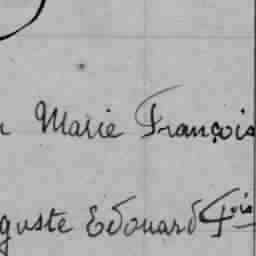 Marie François
guste Edouard